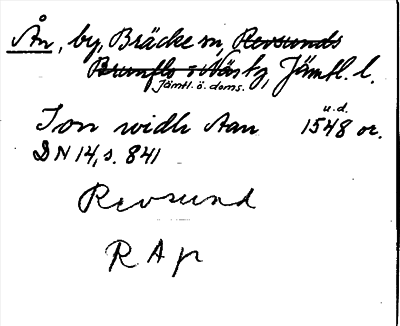 Ån, by, Bräcke sn, Revsunds
Brunflo o Näs tg, Jämtl. l.
Jämtl. ö. doms.
u.d.
Jon widh Aan 1548 or.
DN 14, s. 841
Revsund
R A p